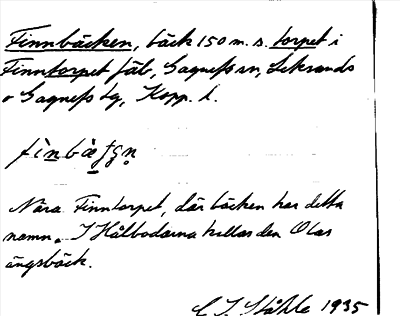 Finnbäcken, bäck 150 m. s. torpet i
Finntorpet fäb, Gagnefs sn, Leksands
o Gagnefs tg, Kopp. l.
Nära Finntorpet, där bäcken har detta
namn. I Hålbodarna kallas den Olas
ängsbäck.
C I Ståhle 1935